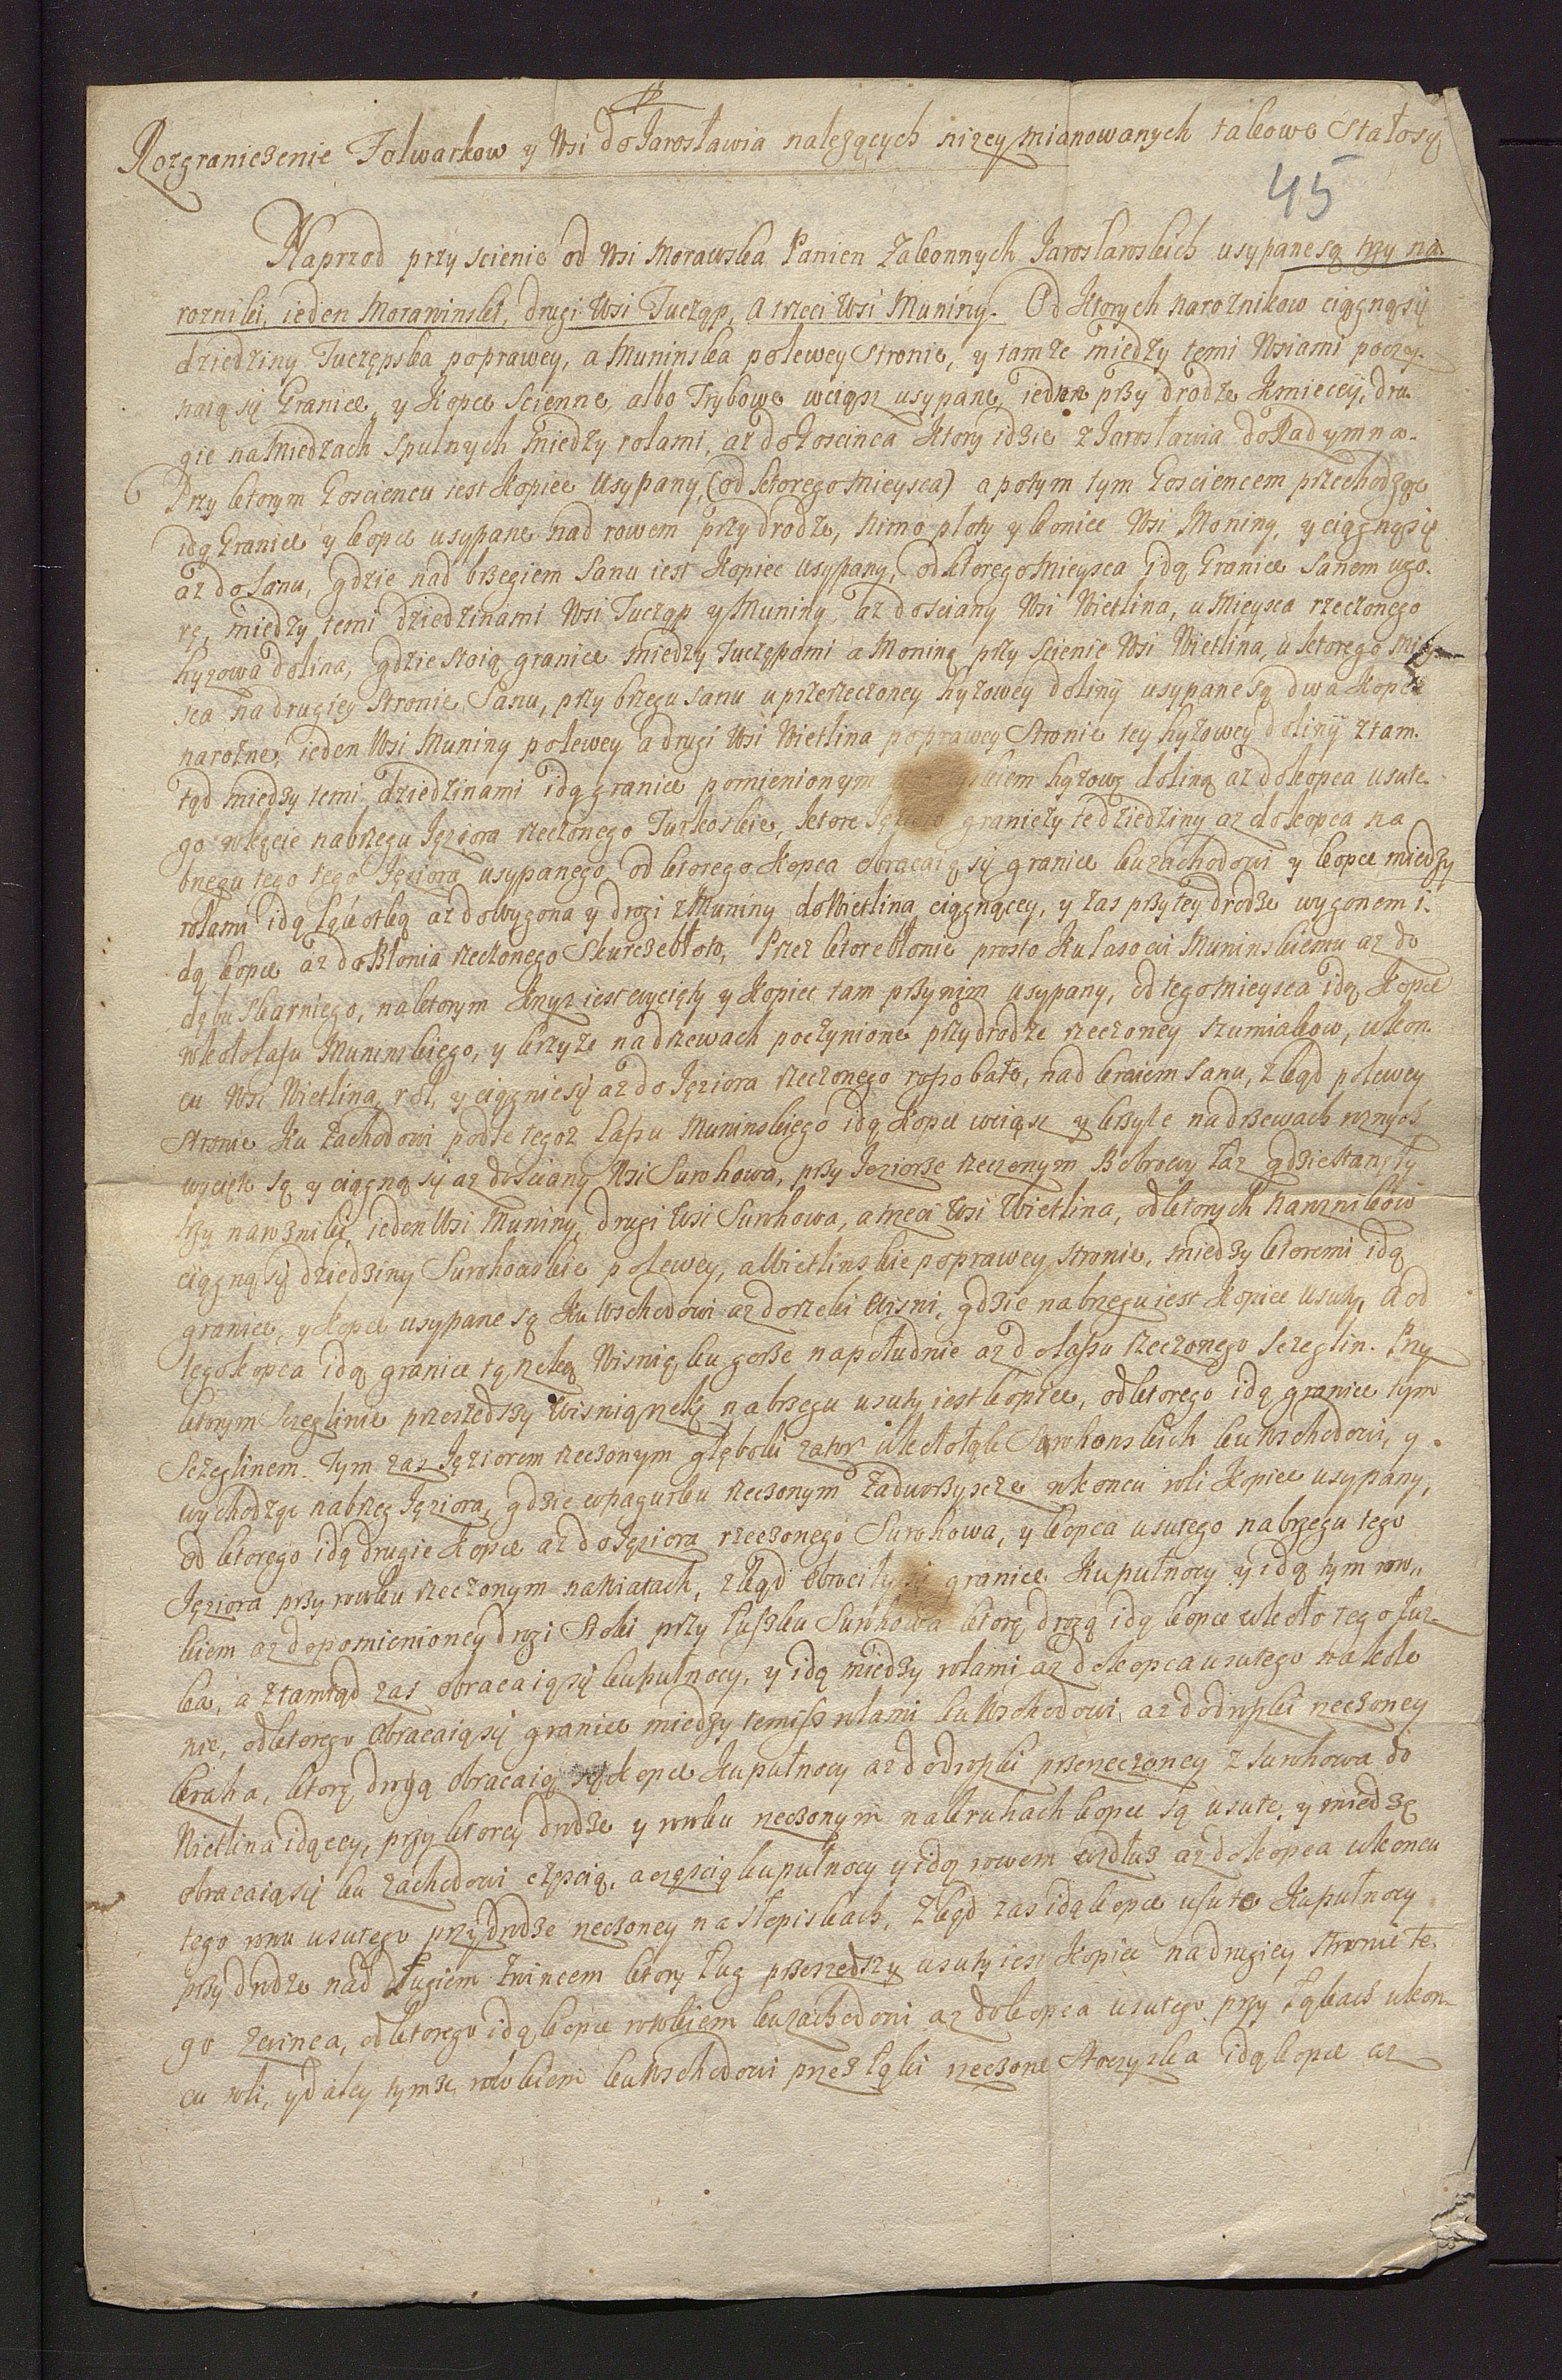 Rozgraniczenie Folwarkow y Wsi do Jarosławia należących niżey mianowanych takowe stałosię
45
Naprzod przy scienie od Wsi Morawska Panien Zakonnych Jarosławskich usypane są trzy na
rozniki, ieden Morawinski, drugi Wsi Tucząp, a trzeci Wsi Muniny. Od ktorych narożnikow ciągnąsię
dziedziny Tuczępska poprawey, a Muninska polewey stronie, y tamże między temi Wsiami poczy-
naią się Granice y Kopce Scienne, albo Trybowe wciąsz usypane, iedne przy drodze Kmieceÿ, dru-
gie na Miedzach spulnych między rolami, aż do Goscinca ktory idzie z Jarosławia do Radymna.
Przy ktorym Gosciencu iest Kopiec Usypany, (od ktorego Mieysca) a potym tym Gosciencem przechodząc
idą Granice y kopce usypane nad rowem przy drodze, mimo płoty y konice Wsi Moniny, y ciągnąsię
aż do Sanu, gdzie nad brzegiem Sanu iest Kopiec Usypany, od ktorego Mieysca idą Granice Sanem ugo-
rę, między temi dziedzinami Wsi Tucząp y Muniny, aż dosciany Wsi Wietlina, u Mieysca rzeczonego
hyzowa dolina, gdzie stoią granice między Tuczępami a Moniną przy Scienie Wsi Wietlina, u ktorego Miey-
sca na drugiey stronie Sanu, przy brzegu Sanu u przerzeczoney hyzowey dolinÿ usypane są dwa Kopce
narożne, ieden Wsi Muniny polewey a drugi Wsi Wietlina poprawey Stronie tey hyzowey dolinÿ ztam-
tąd między temi dziedzinami idą granice pomienionym hyzową doliną aż do kopca usute-
go wkącie nabrzegu Jęziora rzeczonego Turkoskie, ktore graniczy te dziedziny aż do kopca na
brzegu tego tego Jęziora usypanego, od ktorego Kopca obracaią się granice kuzachodowi y kopce między
rolami idą aż do wygona y drogi z Muniny do Wietlina ciągnącey, y zas przy tey drodze wygonem i-
dą kopce aż do Błonia rzeczonego Skurczebłoto, Przez ktore błonie prosto ku Lasowi Muninskiemu aż do
dębu skarniego, na ktorym Krzyz iest wycięty y Kopiec tam przy nim usypany, od tego Mieysca idą Kopce
wkołolasu Muninskiego, y krzyże na drzewach poczynione przydrodze rzeczoney szumiakow, ukon-
cu Wsi Wietlina, rol, y ciągniesię aż do Jęziora rzeczonego rosobato, nad kraiem Sanu, zkąd polewey
Stronie ku Zachodowi podle tegoż Lassu Muninskiego idą Kopce wciąsz y krzyże na drzewach roznych
wycięte są y ciągną się aż dosciany Wsi Surohowa, przy Jeziorze rzeczonym Bobrowy Łaz gdzie stanęły
trzy narozniki, ieden Wsi Muniny, drugi Wsi Surohowa, a trzeci Wsi Wietlina, od ktorych narozników
ciągną się dziedziny Surohowskie polewey, a Wietlinskie poprawey stronie, między ktoremi idą
granice, y kopce usypane są Ku Wschodowi aż dorzeki Wisni, gdzie na brzegu iest Kopiec usuty, A od
tego kopca idą granice tą rzeką Wisnią, ku gorze napołudnie aż dolassu rzeczonego Sczeglin. Przy
ktorym Szeglinie przeszedszy Wisniąrzekę nabrzegu usuty iest kopiec, od ktorego idą granice tym
Sczeglinem. Tym zas Jęziorem rzeczonym głęboki zator wkołołąk Surohowskich kuwschodowi, y
wychodząc nabrzeg Jęziora, gdzie wpagurku rzeczonym Zadworzyscze wkoncu roli Kopiec usypany,
od ktorego idą drugie Kopce aż do Jęziora rzeczonego Surohowa, y kopca usutego nabrzegu tego
Jęziora przy rowku rzeczonym nakwiatach, zkąd obrociły się granice Kupułnocy y idą tym row-
kiem aż dopomienioney drogi Stoki przy Łuszku Surohowa ktorą drogą idą kopce wkoło tego łuz-
ka, a ztamtąd zas obracaią się kupułnocy, y idą między rolami aż do kopca usutego
nie, od ktorego obracaią się granice między temisz rolami ku Wschodowi, aż dodroszki rzeczoney
kraha, ktorą drogą obracaią się kopce Kupułnocy aż do droszki przerzeczoney z Surohowa do
Wietlina idącey, przy ktorey drodze y rowku rzeczonym nakruhach kopce są usute, y miedzę
obracaią się ku zachodowi częscią, a częscią kupułnocy y idą rowem wzdłuż aż do kopca ukoncu
tego rowu usutego przy drodze rzeczoney na słepiskach, Zkąd zas idą kopce usute Kupułnocy
przy drodze nad Ługiem Zwincem ktory Ług przeszedszy usuty iest Kopiec na drugiey stronie te-
go Zwinca, od ktorego idą kopce rowkiem kuzachodowi aż dokopca usutego przy Łąkach ukon-
cu roli, ydaley tymże rowkiem kuwschodowi przez Łąki rzeczone idą kopce aż